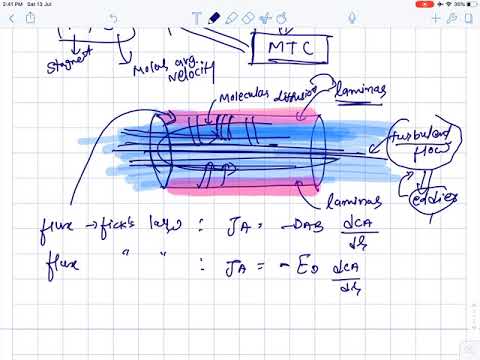 2:41 PM Sat 13 Jul
35%
stagnant
Molar avg.
velocity
MTC
Molecular diffusion
laminar
turbulent
flow
eddies
laminar
flux → fick's law : JA = -DAB dCA/dz
flux " " : JA = - ED dCA/dz